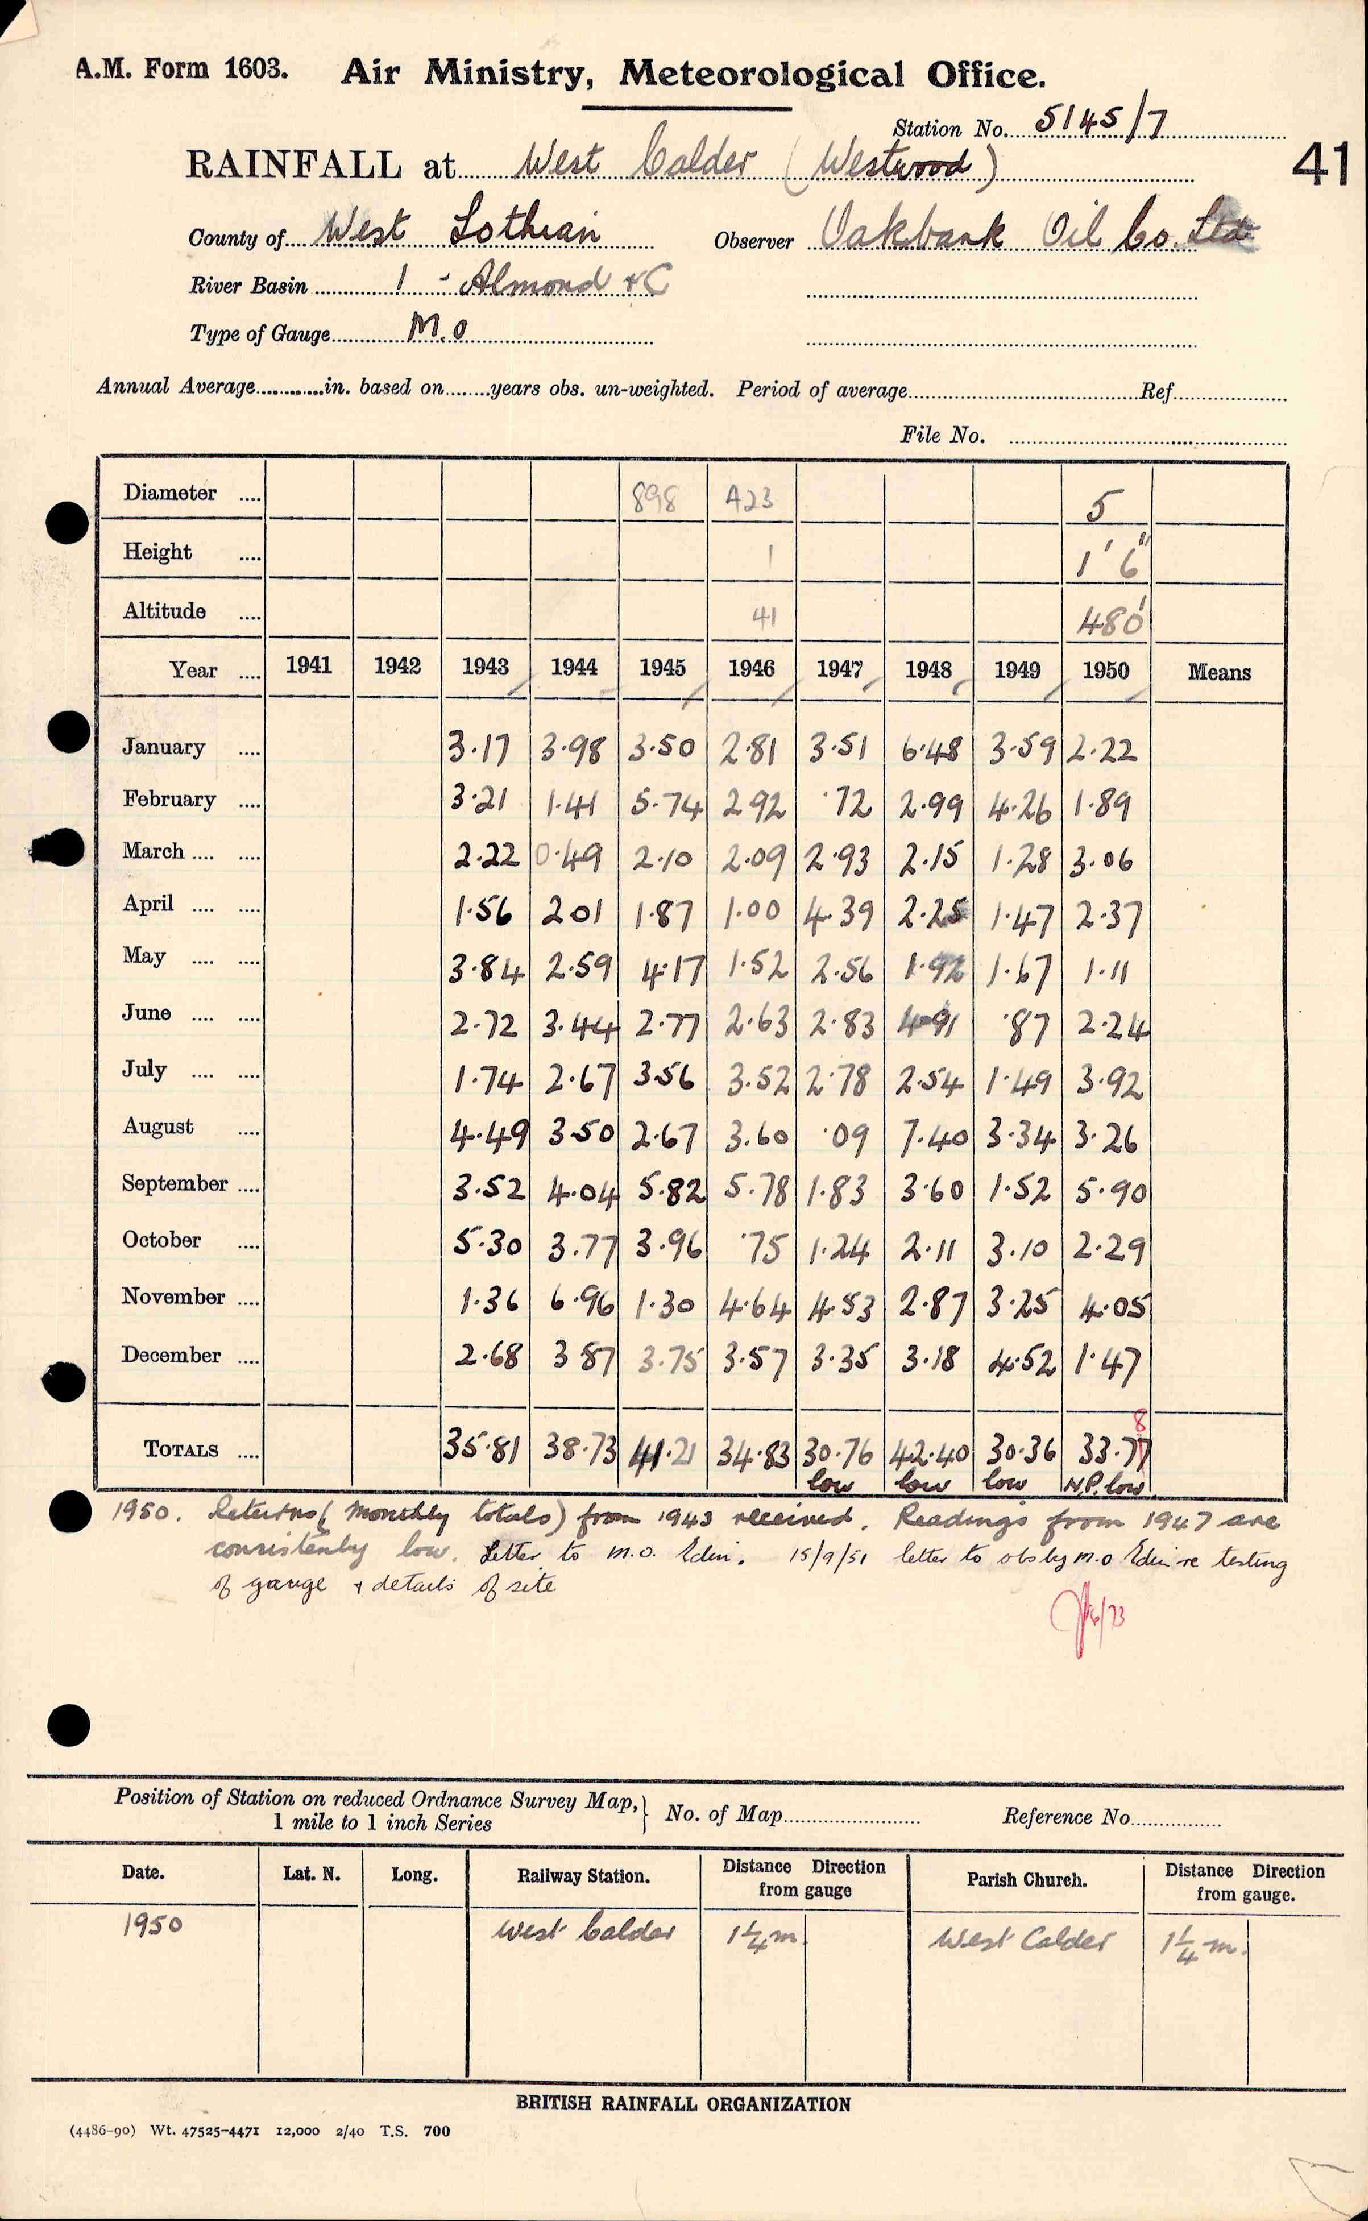 A.M. Form 1603. Air Ministry, Meteorological Office.
Station No. 5145/7
RAINFALL at West Calder (Westwood)
41
County of West Lothian Observer Oakbank Oil Co. Ltd
River Basin 1 - Almond & C
Type of Gauge M.O
Annual Average............in. based on........years obs. un-weighted. Period of average Ref
File No.
Diameter .... 898 A23 5
Height .... 1 1' 6"
Altitude .... 41 480'
Year .... 1941 1942 1943 1944 1945 1946 1947 1948 1949 1950 Means
January .... 3.17 3.98 3.50 2.81 3.51 6.48 3.59 2.22
February .... 3.21 1.41 5.74 2.92 .72 2.99 4.26 1.89
March .... .... 2.22 0.49 2.10 2.09 2.93 2.15 1.28 3.06
April .... .... 1.56 2 01 1.87 1.00 4.39 2.25 1.47 2.37
May .... .... 3.84 2.59 4.17 1.52 2.56 1.92 1.67 1.11
June .... .... 2.72 3.44 2.77 2.63 2.83 4.91 .87 2.24
July .... .... 1.74 2.67 3.56 3.52 2.78 2.54 1.49 3.92
August .... 4.49 3.50 2.67 3.60 .09 7.40 3.34 3.26
September .... 3.52 4.04 5.82 5.78 1.83 3.60 1.52 5.90
October .... 5.30 3.77 3.96 .75 1.24 2.11 3.10 2.29
November .... 1.36 6.96 1.30 4.64 4.53 2.87 3.25 4.05
December .... 2.68 3 87 3.75 3.57 3.35 3.18 4.52 1.47
8
TOTALS .... 35.81 38.73 41.21 34.83 30.76 42.40 30.36 33.77
low low low N.P. low
1950. Returns (monthly totals) from 1943 received. Readings from 1947 are
consistently low. Letter to M.O. Edin. 15/9/51 letter to obs by M.O Edin re testing
of gauge & details of site
/73
Position of Station on reduced Ordnance Survey Map, } No. of Map Reference No.
1 mile to 1 inch Series
Date. Lat. N. Long. Railway Station. Distance Direction from gauge Parish Church. Distance Direction from gauge.
1950 West Calder 1¼ m. West Calder 1¼ m.
BRITISH RAINFALL ORGANIZATION
(4486-90) Wt. 47525-4471 12,000 2/40 T.S. 700